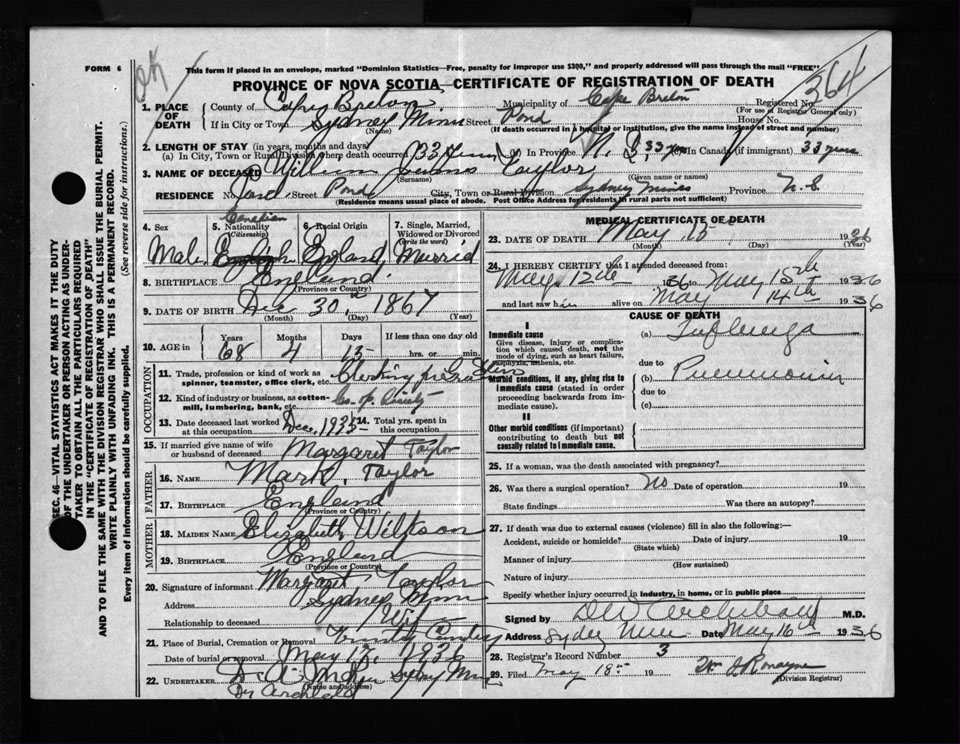 FORM 6
ok
This form if placed in an envelope, marked "Dominion Statistics—Free, penalty for improper use $300," and properly addressed will pass through the mail "FREE"
PROVINCE OF NOVA SCOTIA, CERTIFICATE OF REGISTRATION OF DEATH
364
1. PLACE OF DEATH County of Cape Breton Municipality of Cape Breton Registered No.
(For use of Registrar General only)
If in City or Town Sydney Mines Street Pond House No.
(Name) (If death occurred in a hospital or institution, give the name instead of street and number)
2. LENGTH OF STAY (in years, months and days)
(a) In City, Town or Rural Division where death occurred 33 years (b) In Province N. S. 33 yrs (c) In Canada (if immigrant) 33 years
3. NAME OF DECEASED William Taylor
(Surname) (Given name or names)
RESIDENCE Street Pond City, Town or Rural Division Sydney Mines Province N. S.
(Residence means usual place of abode. Post Office Address for residents in rural parts not sufficient)
4. Sex Male
5. Nationality (Citizenship) Canadian English
6. Racial Origin England
7. Single, Married, Widowed or Divorced (Write the word) Married
8. BIRTHPLACE England
(Province or Country)
9. DATE OF BIRTH Dec 30 1867
(Month) (Day) (Year)
10. AGE in Years 68 Months 4 Days 15 If less than one day old hrs. or min.
OCCUPATION
11. Trade, profession or kind of work as spinner, teamster, office clerk, etc.
12. Kind of industry or business, as cotton-mill, lumbering, bank, etc. Co-op
13. Date deceased last worked at this occupation Dec. 1935 14. Total yrs. spent in this occupation
15. If married give name of wife or husband of deceased Margaret Taylor
FATHER
16. NAME Mark Taylor
17. BIRTHPLACE England
(Province or Country)
MOTHER
18. MAIDEN NAME Elizabeth
19. BIRTHPLACE England
(Province or Country)
20. Signature of informant Margaret Taylor
Address Sydney Mines
Relationship to deceased Wife
21. Place of Burial, Cremation or Removal Trinity
Date of burial or removal May 1936
22. UNDERTAKER Sydney Mines
(Name and address)
Dr Archibald
MEDICAL CERTIFICATE OF DEATH
23. DATE OF DEATH May 15 1936
(Month) (Day) (Year)
24. I HEREBY CERTIFY that I attended deceased from:
May 12th 1936 to May 15th 1936
and last saw him alive on May 14th 1936
CAUSE OF DEATH
I
Immediate cause
Give disease, injury or complication which caused death, not the mode of dying, such as heart failure, asphyxia, asthenia, etc.
(a) Influenza
due to
Morbid conditions, if any, giving rise to immediate cause (stated in order proceeding backwards from immediate cause).
(b) Pneumonia
due to
(c)
II
Other morbid conditions (if important) contributing to death but not causally related to immediate cause.
25. If a woman, was the death associated with pregnancy?
26. Was there a surgical operation? No Date of operation 19
State findings Was there an autopsy?
27. If death was due to external causes (violence) fill in also the following:—
Accident, suicide or homicide? Date of injury 19
(State which)
Manner of injury
(How sustained)
Nature of injury
Specify whether injury occurred in industry, in home, or in public place
Signed by D W Archibald M.D.
Address Sydney Mines Date May 16th 1936
28. Registrar's Record Number 3
29. Filed May 18th 19
(Division Registrar)
SEC. 46—VITAL STATISTICS ACT MAKES IT THE DUTY
OF THE UNDERTAKER OR PERSON ACTING AS UNDER-
TAKER TO OBTAIN ALL THE PARTICULARS REQUIRED
IN THE "CERTIFICATE OF REGISTRATION OF DEATH"
AND TO FILE THE SAME WITH THE DIVISION REGISTRAR WHO SHALL ISSUE THE BURIAL PERMIT.
WRITE PLAINLY WITH UNFADING INK. THIS IS A PERMANENT RECORD.
Every item of information should be carefully supplied. (See reverse side for instructions.)